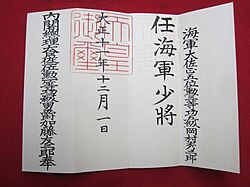 海軍大佐 五位勲三等功 級岡村
任海軍少將
大正十一年十二月一日
天皇御璽
内閣總理大臣 位勲一等功二級男爵加藤友三郎奉